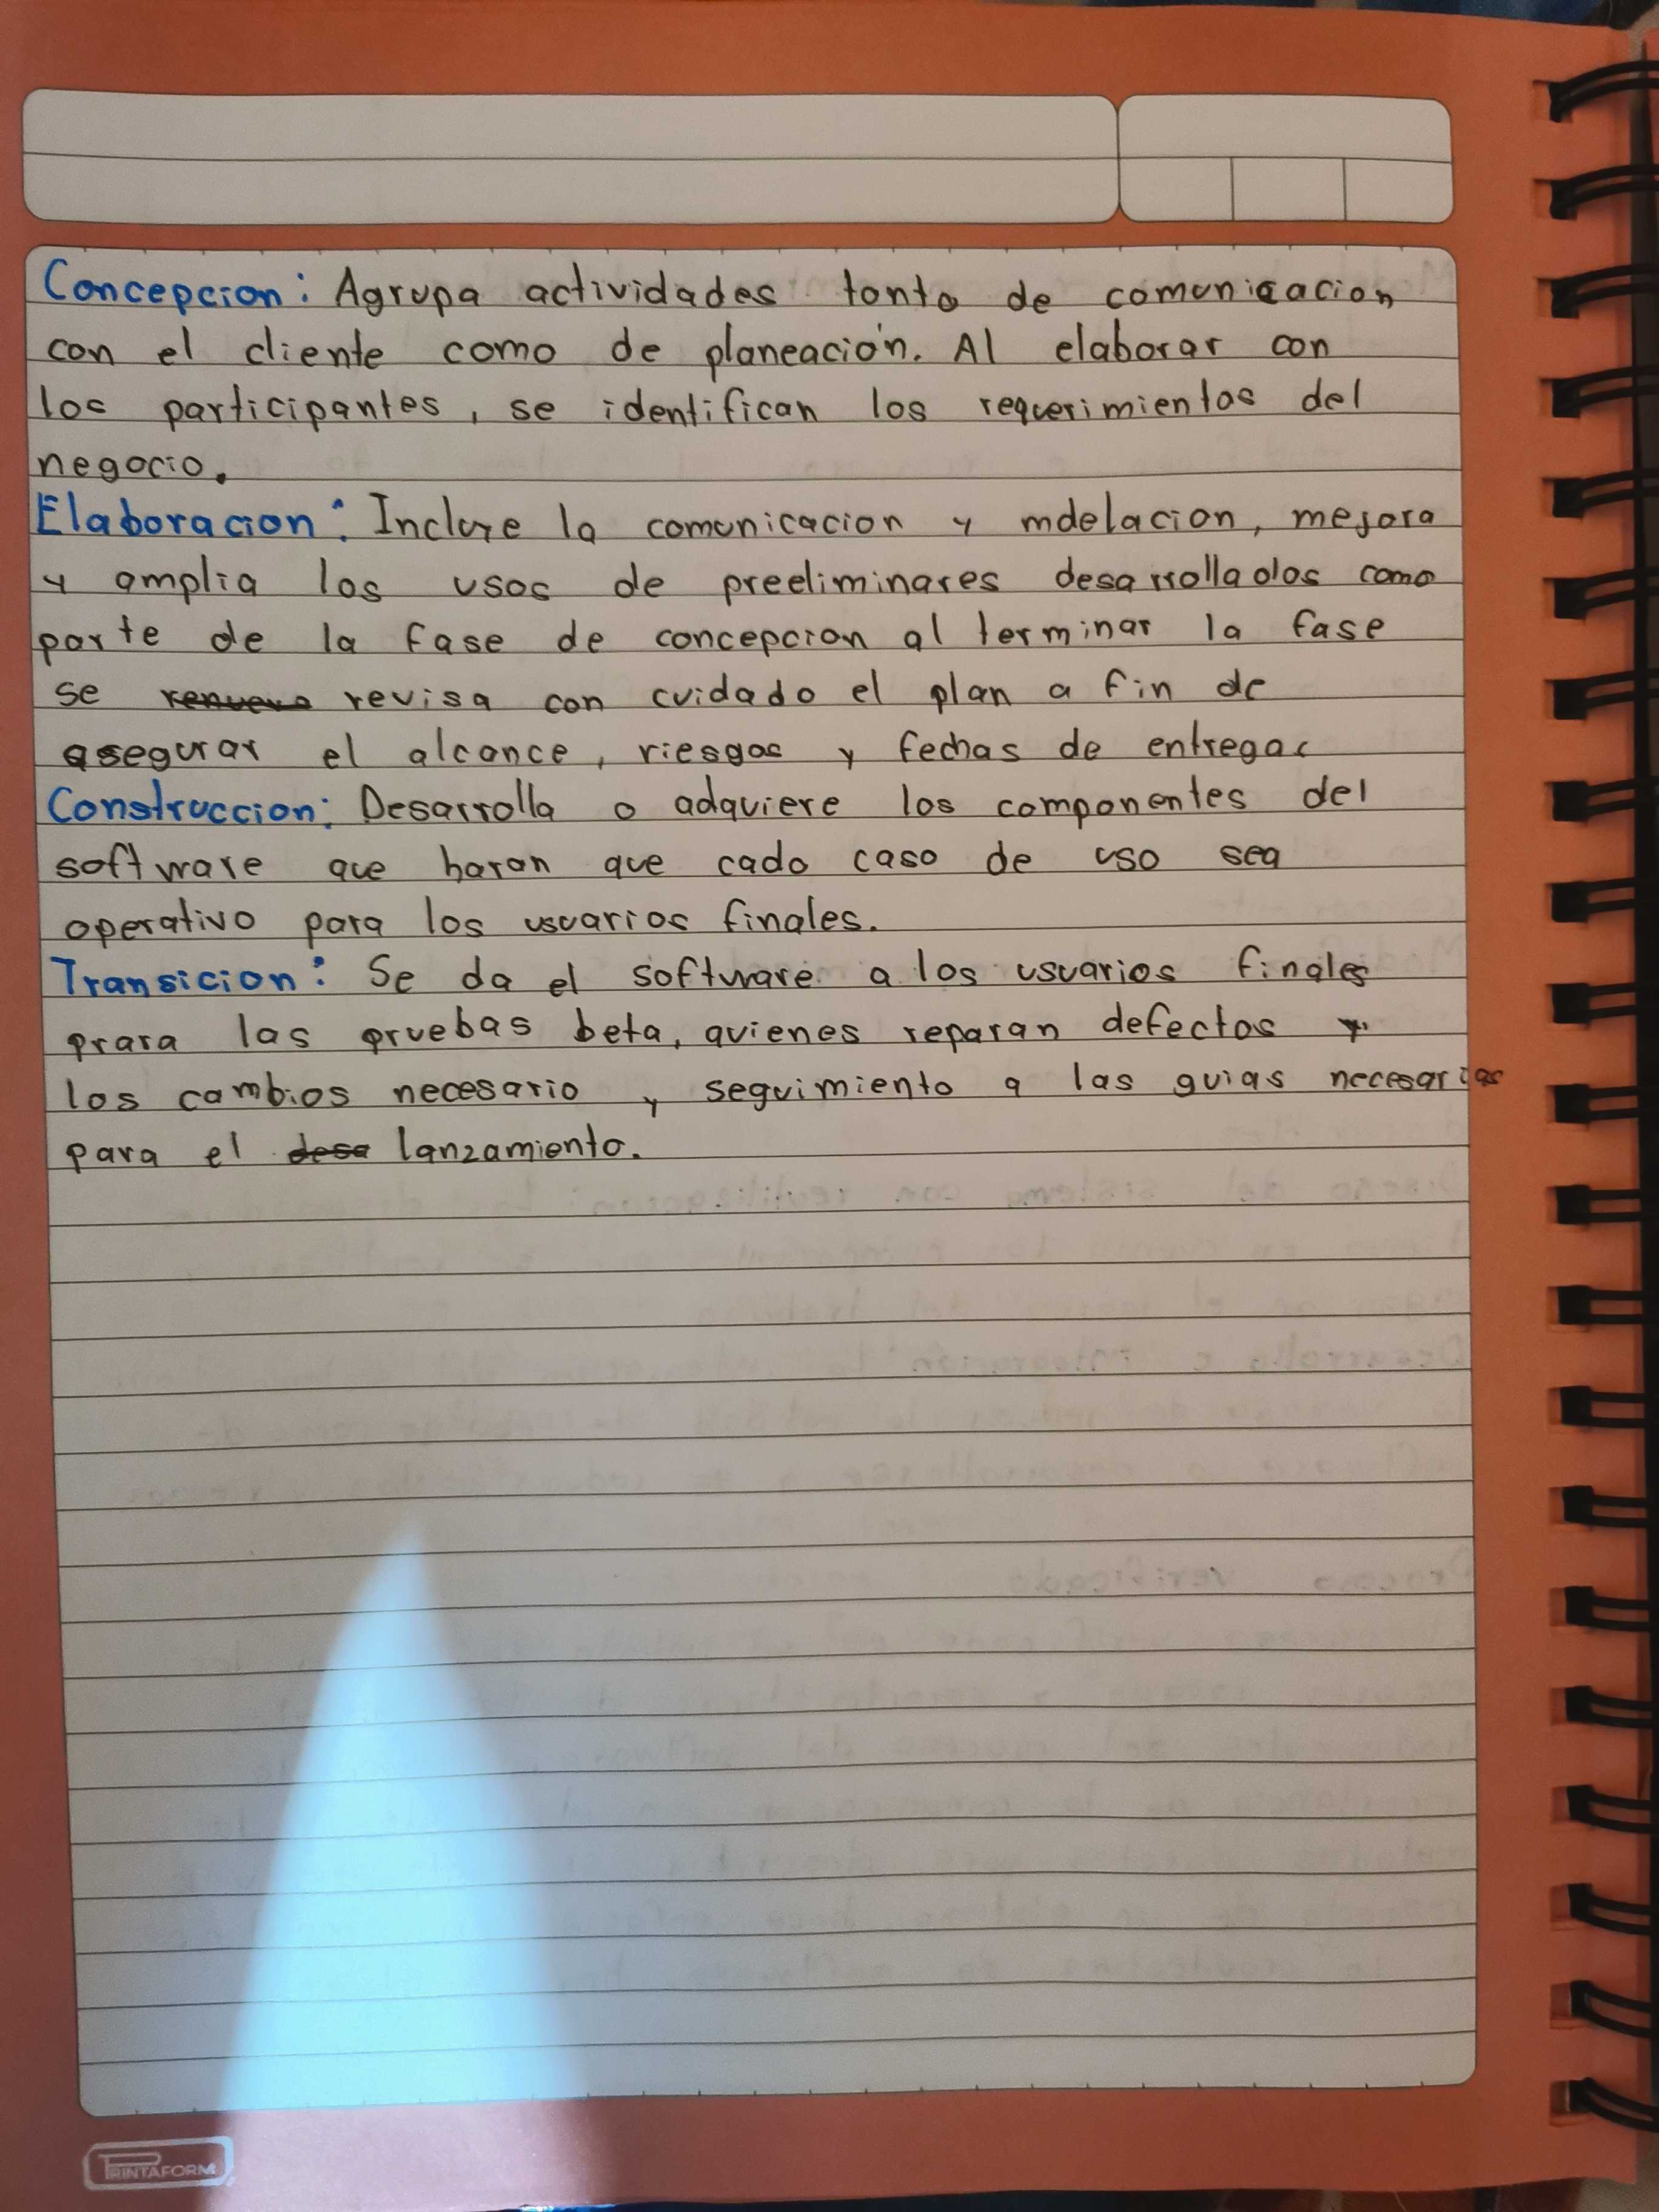 Concepcion: Agrupa actividades tanto de comunicacion
con el cliente como de planeación. Al elaborar con
los participantes, se identifican los requerimientos del
negocio.
Elaboracion: Incluye la comunicacion y mdelacion, mejora
y amplia los usos de preeliminares desarrollados como
parte de la fase de concepcion al terminar la fase
se revisa con cuidado el plan a fin de
asegurar el alcance, riesgos y fechas de entregas
Construccion: Desarrolla o adquiere los componentes del
software que haran que cada caso de uso sea
operativo para los usuarios finales.
Transicion: Se da el software a los usuarios finales
prara las pruebas beta, quienes reparan defectos y
los cambios necesario y seguimiento a las guias necesarias
para el desa lanzamiento.
PRINTAFORM